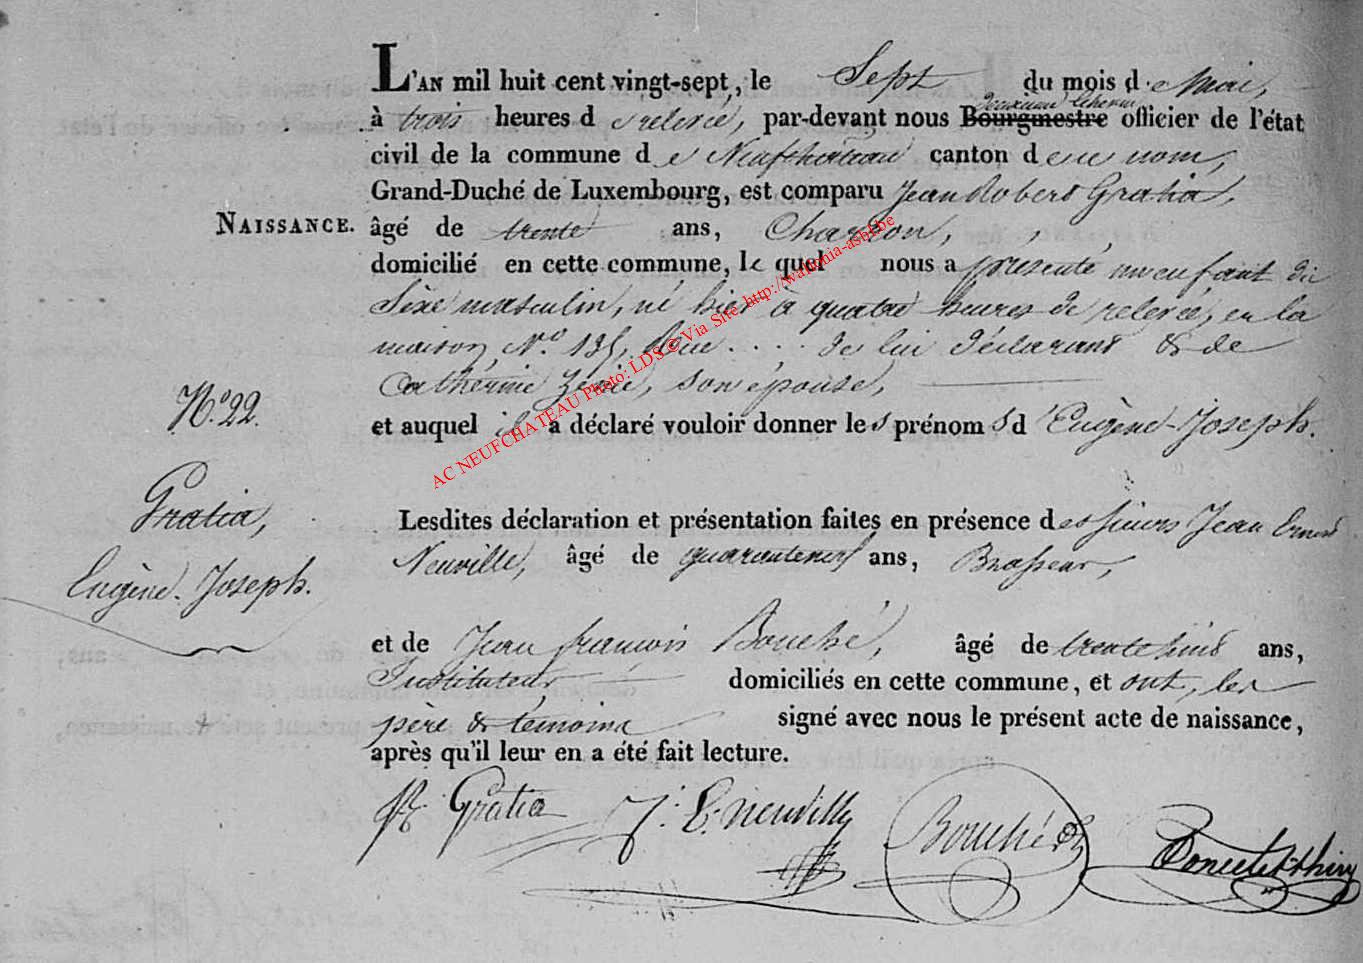 L'AN mil huit cent vingt-sept, le Sept du mois de Mai,
à trois heures de relevée, par-devant nous Bourgmestre officier de l'état
civil de la commune de Neufchâteau canton de ce nom,
Grand-Duché de Luxembourg, est comparu Jean Robert Gratia,
NAISSANCE. âgé de trente ans, Charron,
domicilié en cette commune, le quel nous a présenté un enfant du
Sexe masculin, né hier à quatre heures de relevée, en la
maison N.º 135, de lui déclarant & de
Catherine son épouse,
Nº 22. et auquel il a déclaré vouloir donner les prénoms d'Eugène-Joseph.
Gratia,
Eugène-Joseph.
Lesdites déclaration et présentation faites en présence des sieurs Jean Ernest
Neuville, âgé de quarante neuf ans, Brasseur,
et de Jean françois Bouché, âgé de trente huit ans,
Instituteur domiciliés en cette commune, et ont, les
père & témoins signé avec nous le présent acte de naissance,
après qu'il leur en a été fait lecture.
Gratia J: E. Neuville Bouché
AC NEUFCHATEAU Photo: LDS © Via Site: http://wallonia-asbl.be